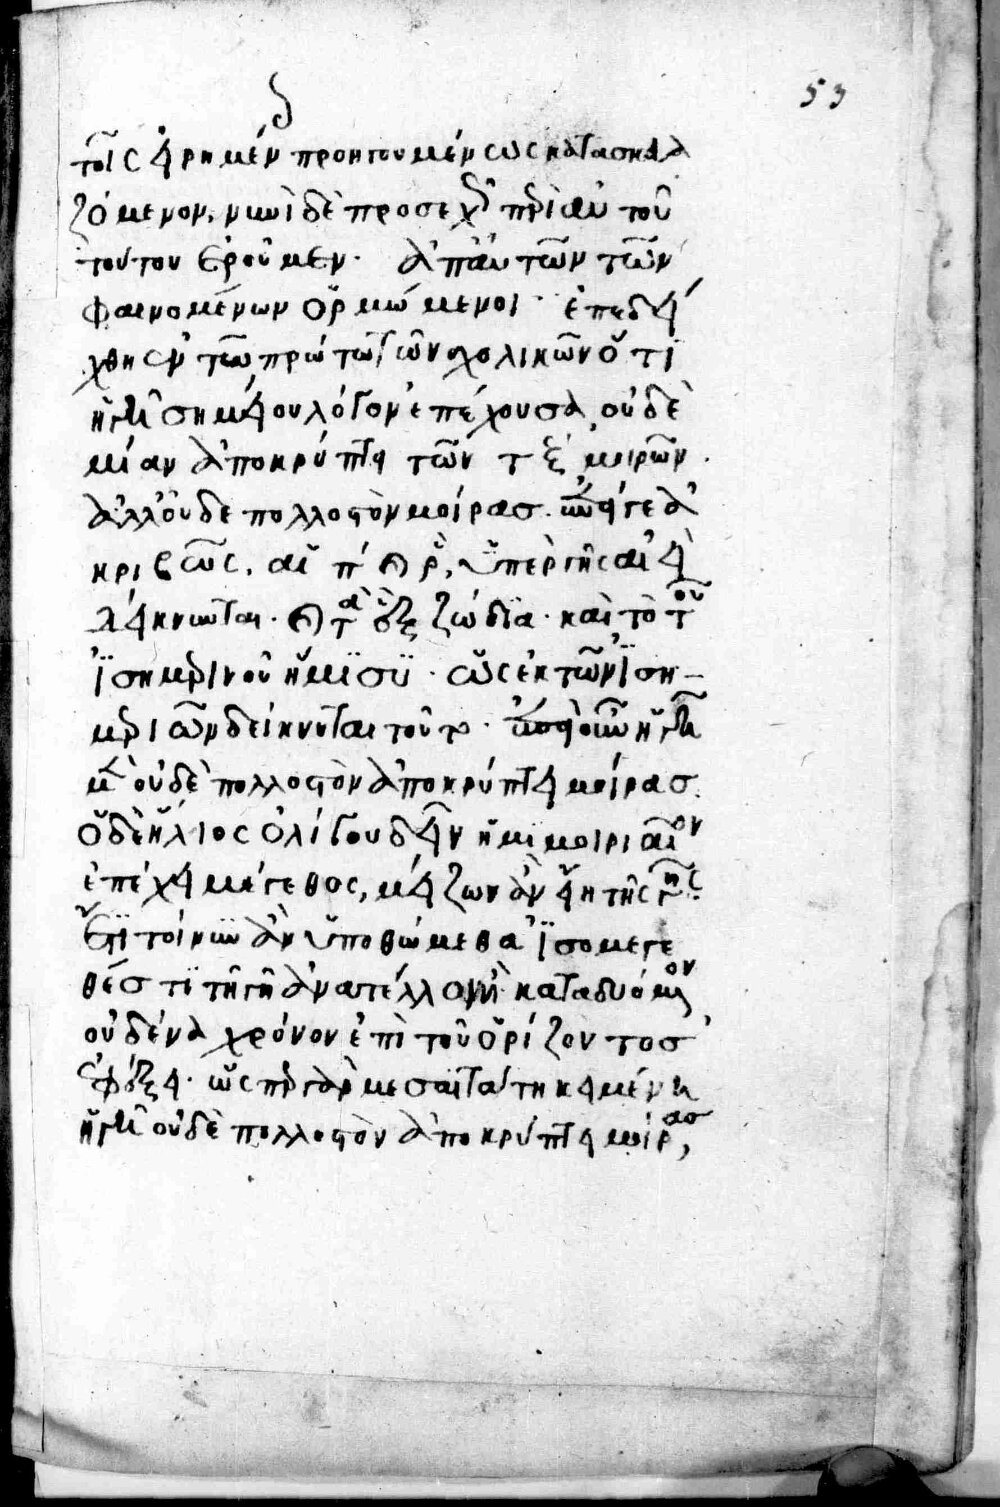 53
τοῖς εἰρημένοις προηγουμένως κατασκευα
ζόμενον. νυνὶ δὲ προσεχῶς περὶ αὐτοῦ
τούτου ἐροῦμεν. ἀπ' αὐτῶν τῶν
φαινομένων ὁρμώμενοι. ἐπεδεί
χθη ἐν τῶ πρώτω τῶν σχολικῶν ὅτι
ἡ γῆ σημείου λόγον ἐπέχουσα οὐδε
μίαν ἀποκρύπτει τῶν τξ μοιρῶν.
ἀλλ' οὐδὲ πολλοστὸν μοίρας. ὥστε γε ἀ
κριβῶς. αἱ π καὶ ρ, ὑπὲρ γῆς αἰεὶ
δείκνυνται. καὶ τὰ ἓξ ζώδια. καὶ τὸ τοῦ
ἰσημερινοῦ ἥμισυ. ὡς ἐκ τῶν ἰση
μεριῶν δείκνυται τοῦτο. ἡ γῆ
μὲν οὐδὲ πολλοστὸν ἀποκρύπτει μοίρας.
ὁ δὲ ἥλιος ὀλίγου δεῖν ἡμιμοιριαῖον
ἐπέχει μέγεθος, μείζων ἂν εἴη τῆς γῆς.
ἔτι τοίνυν ἂν ὑποθώμεθα ἰσομεγε
θές τι τῆ γῆ ἀνατέλλον ἢ καταδυόμενον
οὐδένα χρόνον ἐπὶ τοῦ ὁρίζοντος
ἐφέξει. ὥσπερ γὰρ μεσαιτάτη κειμένη
ἡ γῆ οὐδὲ πολλοστὸν ἀποκρύπτει μοίρας,